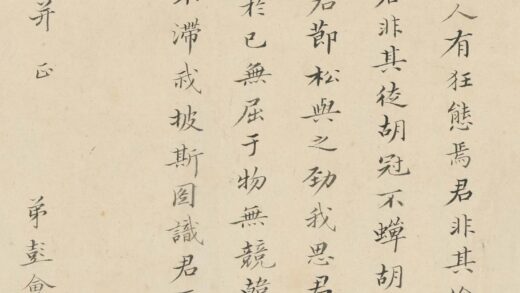 人有狂態焉君非其
君非其徒胡冠不蟬胡
君節松與之勁我思君
於己無屈于物無競
滯我披斯圖識君
并正 弟彭